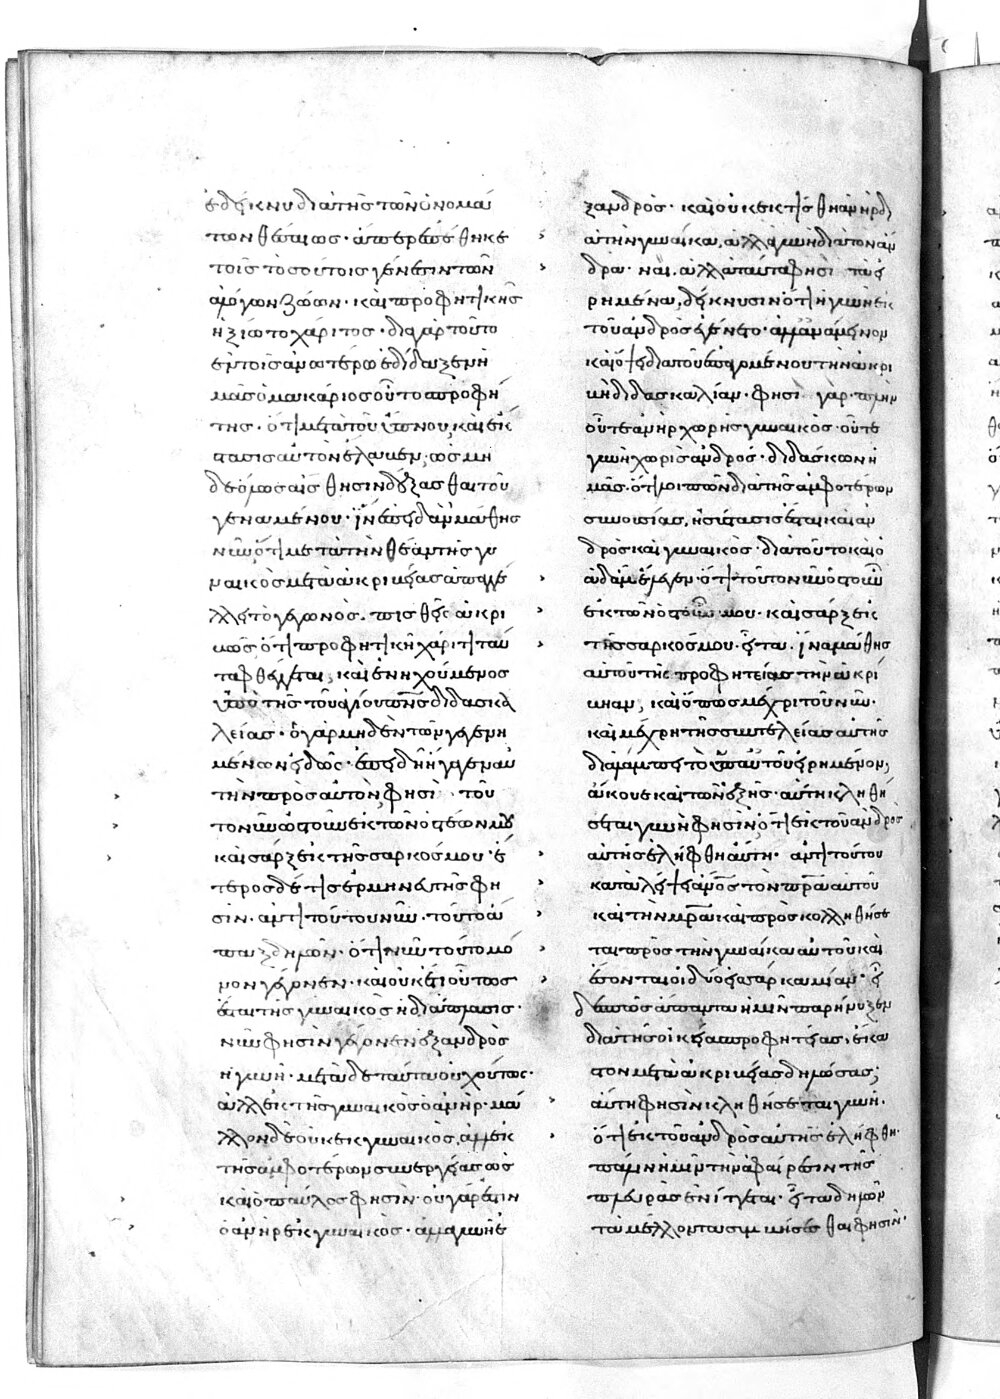 ἐδείκνυ διὰ τῆς τῶν ὀνομά
των θέσεως· ἅπερ ἐπέθηκε
τοῖς τοσούτοις γένεσιν τῶν
ἀλόγων ζώων· καὶ προφητικῆς
ἠξίωτο χάριτος· διὰ γὰρ τοῦτο
ἐν τοῖς ἀνωτέρω ἐδίδαξεν ἡ
μᾶς ὁ μακάριος οὗτος προφή
της· ὅτι μετὰ τοῦ ὕπνου, καὶ ἔκ
στασις αὐτὸν ἔλαβεν, ὡς μη
δεόμως αἴσθησιν δέξασθαι τοῦ
γεναμένου· ἵν' ἐπειδὰν μάθῃς
νῦν ὅτι μετὰ τὴν θέαν τῆς γυ
ναικὸς μετὰ ἀκριβείας ἀπαγγέ
λλει τὸ γεγονὸς. πισθεὶς ἀκρι
βῶς ὅτι προφητικῇ χάριτι ταῦ
τα φθέγγεται, καὶ ἐνηχούμενος
ὑπὸ τῆς τοῦ ἁγίου πνς διδασκα
λείας· ὁ γὰρ μηδὲν τῶν γεγενη
μένων εἰδὼς· ἐπειδὴ ἤγαγεν αὐ
τὴν πρὸς αὐτὸν, φησὶ τοῦ
το νῦν ὀστοῦν ἐκ τῶν ὀστέων μου
καὶ σὰρξ ἐκ τῆς σαρκός μου· ἕ
τερος δέ τις ἑρμηνευτής φη
σιν· ἀντὶ τοῦ τοῦ νῦν· τοῦτο ἅ
παξ δηλῶν· ὅτι νῦν τοῦτο μό
νον γέγονεν· καὶ οὐκέτι οὕτως
ἔσται τῆς γυναικὸς ἡ διάπλασις·
νῦν φησὶν γέγονεν ἐξ ἀνδρὸς
ἡ γυνή· μετὰ δὲ ταῦτα οὐχ οὕτως·
ἀλλ' ἐκ τῆς γυναικὸς ὁ ἀνήρ· μᾶ
λλον δὲ οὐκ ἐκ γυναικὸς, ἀλλ' ἐκ
τῆς ἀμφοτέρων συνεργείας ὡς
καὶ ὁ παῦλος φησίν· οὐ γάρ ἐστιν
ὁ ἀνὴρ ἐκ γυναικὸς· ἀλλὰ γυνὴ ἐ
ξ ἀνδρὸς· καὶ οὐκ ἐκτίσθη ἀνὴρ δι
ὰ τὴν γυναῖκα, ἀλλὰ γυνὴ διὰ τὸν ἄν
δρα· ναὶ. ἀλλὰ ταῦτα φησὶ τὰ εἰ
ρημένα, δείκνυσιν ὅτι ἡ γυνὴ ἐκ
τοῦ ἀνδρὸς ἐγένετο· ἀλλ' ἀνάμεινον
καὶ ὄψει διὰ τοῦ ἐπαγομένου τὴν ἀκρι
βῆ διδασκαλίαν· φησὶ γάρ· πλὴν
οὔτε ἀνὴρ χωρὶς γυναικὸς· οὔτε
γυνὴ χωρὶς ἀνδρός· διδάσκων ἡ
μᾶς· ὅτι λοιπὸν διὰ τῆς ἀμφοτέρων
συνουσίας, ἡ σύστασις ἔσται καὶ ἀν
δρὸς καὶ γυναικός· διὰ τοῦτο καὶ ὁ
ἀδὰμ ἔλεγεν· ὅτι τοῦτο νῦν ὀστοῦν
ἐκ τῶν ὀστῶν μου· καὶ σὰρξ ἐκ
τῆς σαρκός μου· εἶτα. ἵνα μάθῃς
αὐτοῦ τῆς προφητείας τὴν ἀκρί
βειαν, καὶ ὅπως μέχρι τοῦ νῦν·
καὶ μέχρι τῆς συντελείας αὐτῆς
διαλάμπει τὸ ὑπ' αὐτοῦ εἰρημένον,
ἄκουε καὶ τῶν ἑξῆς· αὕτη κληθή
σεται γυνὴ φησὶν, ὅτι ἐκ τοῦ ἀνδρὸς
αὐτῆς ἐλήφθη αὕτη· ἀντὶ τούτου
καταλείψει ἄνος τὸν πρα αὐτοῦ
καὶ τὴν μρα καὶ προσκολληθήσε
ται πρὸς τὴν γυναῖκα αὐτοῦ καὶ
ἔσονται οἱ δύο εἰς σάρκα μίαν· εἶ
δες πῶς ἅπαντα ἡμῖν παρήνυξεν
διὰ τῆς οἰκείας προφητείας, ἕκα
στον μετὰ ἀκριβείας δηλώσας;
αὕτη φησὶν κληθήσεται γυνή·
ὅτι ἐκ τοῦ ἀνδρὸς αὐτῆς ἐλήφθη·
πάλιν ἡμῖν τὴν ἀφαίρεσιν τῆς
πλευρᾶς αἰνίττεται· εἶτα δηλῶν
τὰ μέλλοντα συμβήσεσθαι φησίν·